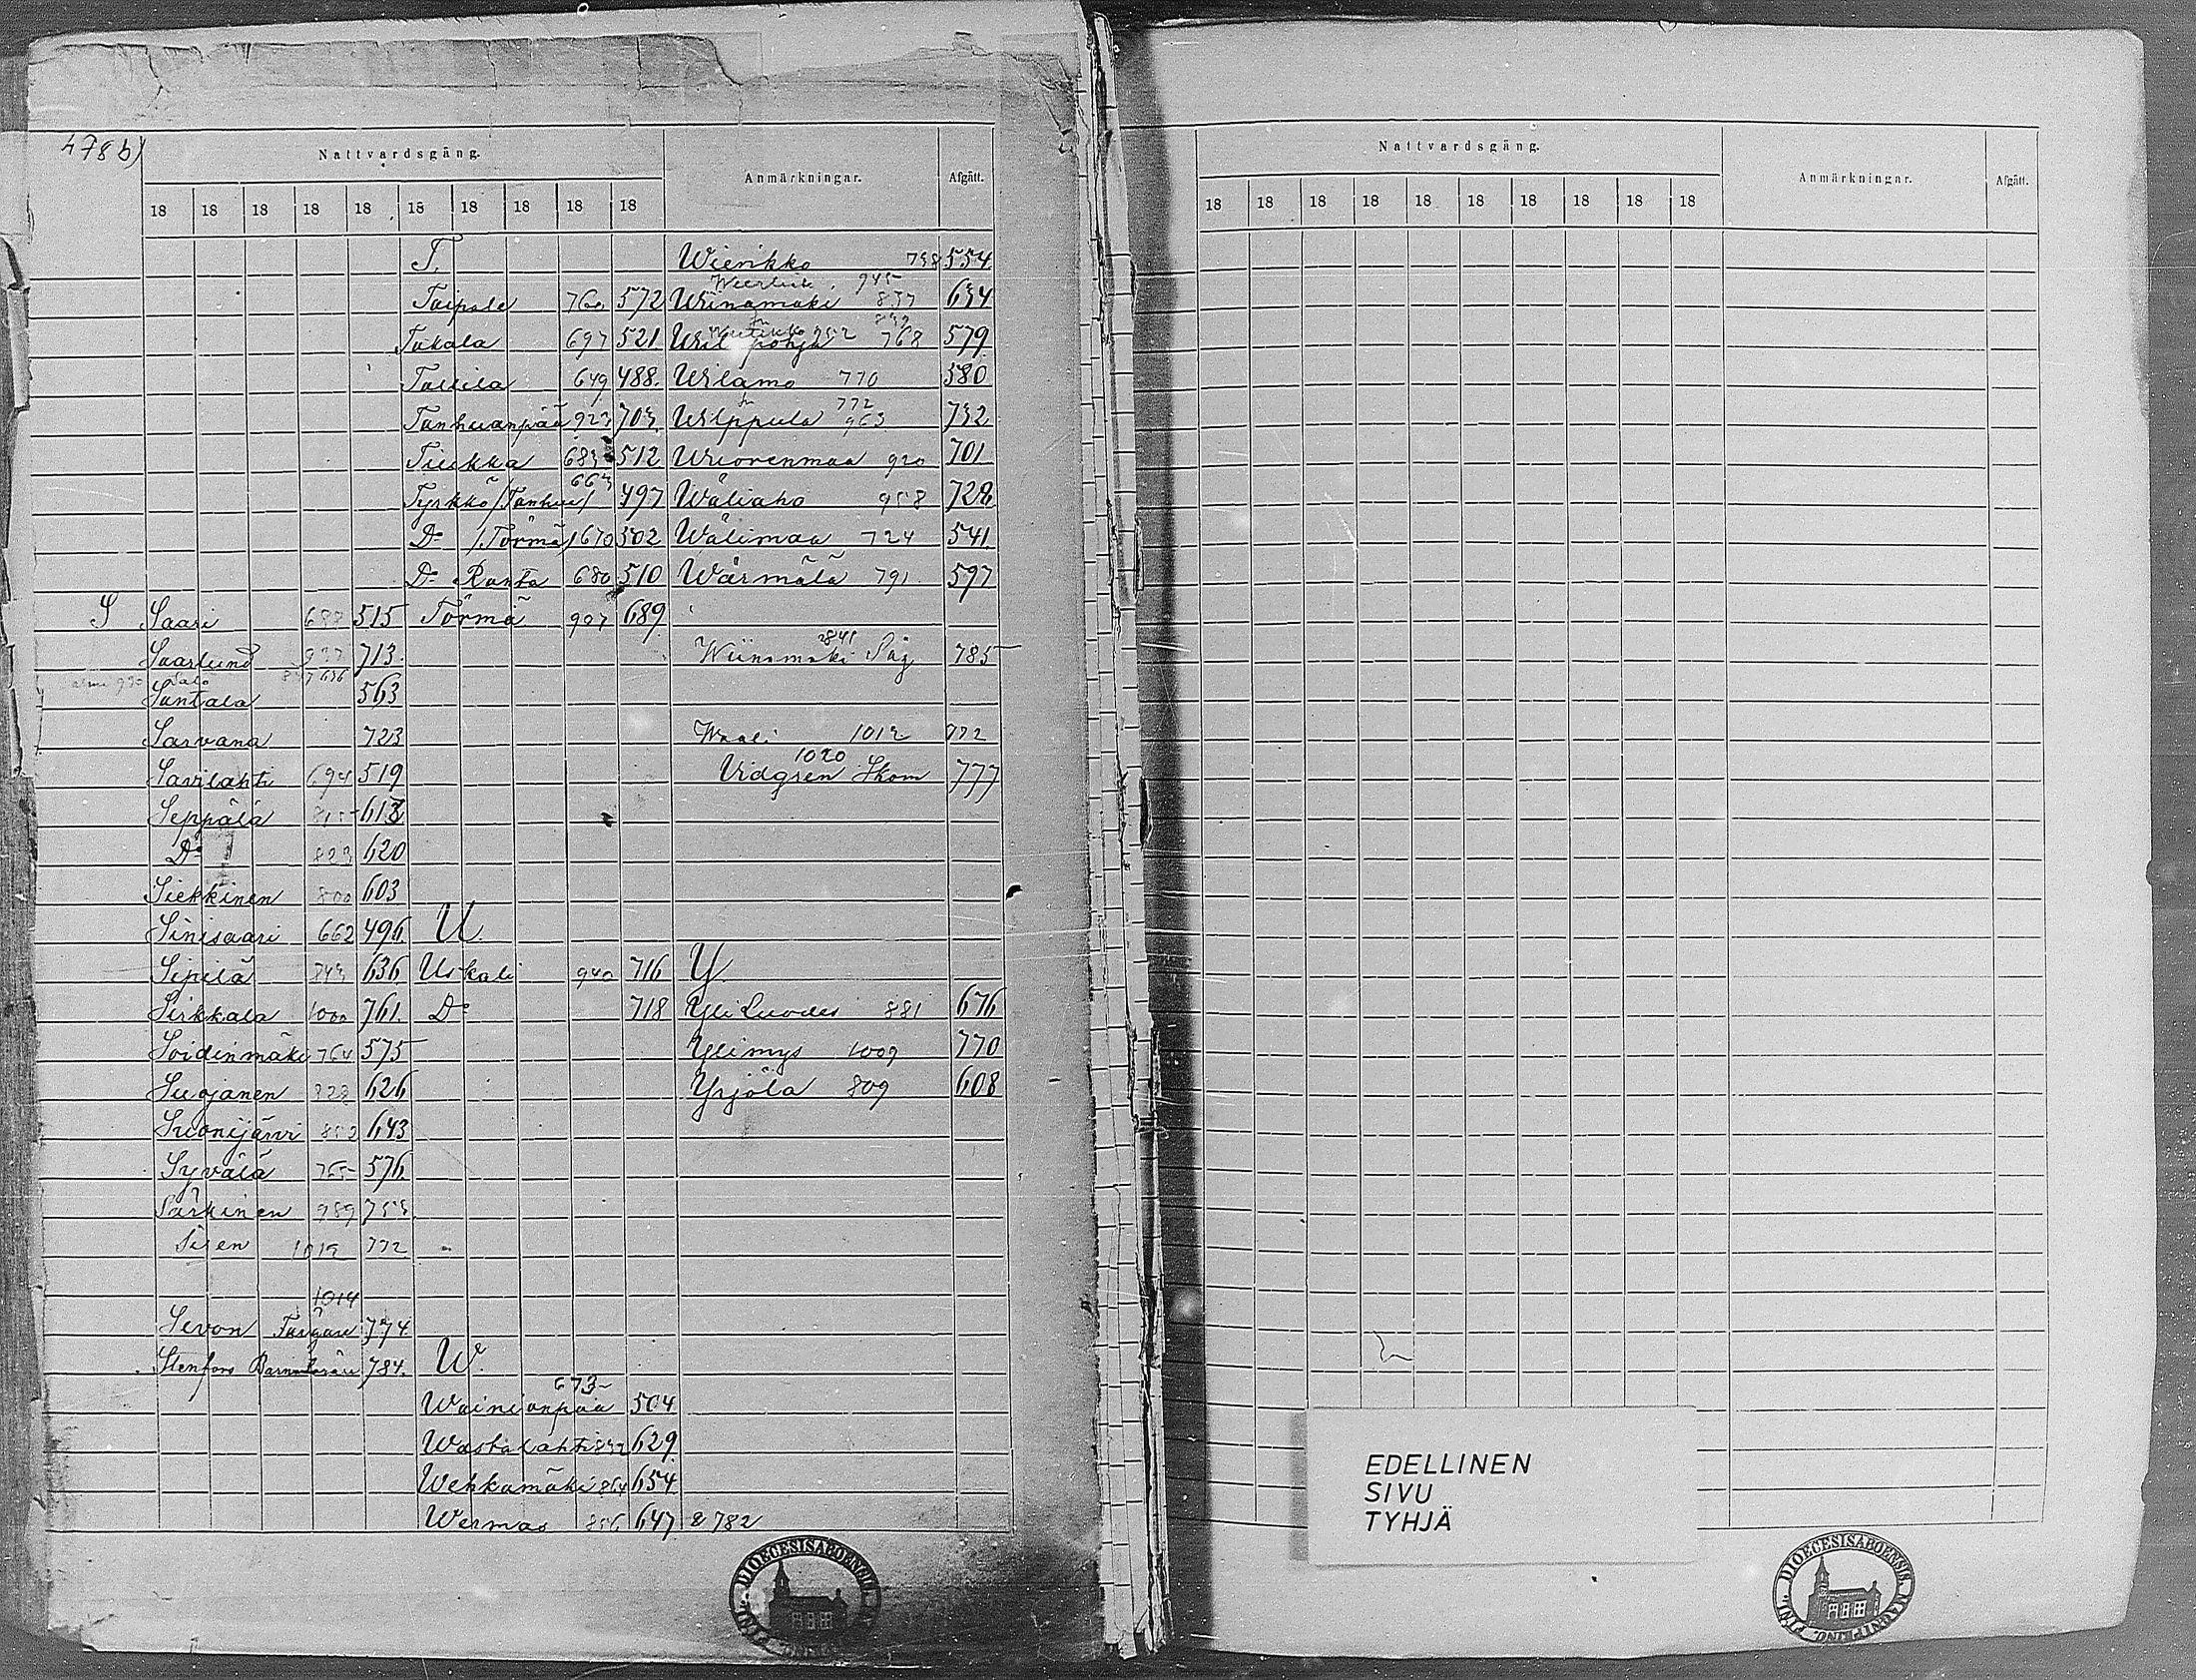 478 b)
Nattvardsgång.
Anmärkningar.
Afgått.
18 18 18 18 18 18 18 18 18 18
T. Wierikko 738 554
945
Taipale 760 572 Wiinamäki 837 634
Takala 697 521 pohja 768 579
Tallila 649 488. Wilamo 770 580
772
Tanhuanpää 923 703 Wilppula 963 732
Tiukka 683 512 Wuorenmaa 920 701
663
Tyrkkö /Tanhua/ 497 Wäliaho 958 728
Do /Törmä/ 670 502 Wälimaa 724 541
Do Ranta 680 510 Wärmälä 791 597
S Saari 515 Törmä 907 689
Saarlund 937 713
841
Wiinamäki Såg 785
Salo
Santala 563
Sarvana 723 Waali 1012 772
1020
Savilahti 694 519 Vidgren Skom 777
Seppälä 815 613
Do 823 620
Siekkinen 800 603
Sinisaari 662 496 U.
Sipilä 843 636 Uskali 940 716 Y.
Sirkkala 1000 761. Do 718 Yli Luodes 881 676
Soidinmäki 764 575 Ylimys 1009 770
Suojanen 626 Yrjölä 809 608
Suonijärvi 852 643
Syvälä 765 576
Särkinen 989 753
Siren 1012 772
1014
Sevon Färgare 774
Stenfors 784. W.
673
Wainionpää 504
Wastalahti 832 629
Wehkamäki 864 654
Wermas 856 647 & 782
Nattvardsgång.
Anmärkningar.
Afgått.
18 18 18 18 18 18 18 18 18 18
EDELLINEN
SIVU
TYHJÄ